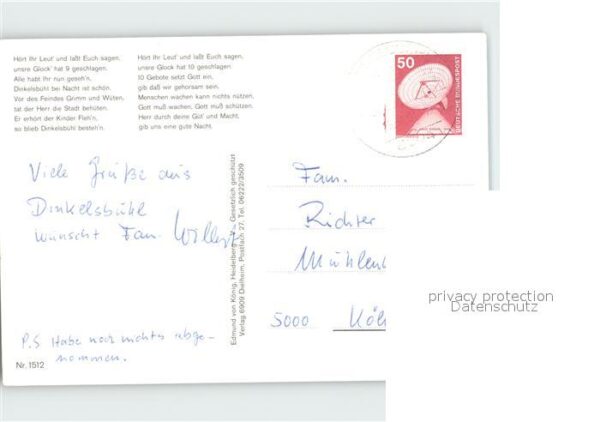 Hört Ihr Leut' und laßt Euch sagen,
unsre Glock' hat 9 geschlagen.
Alle habt Ihr nun geseh'n,
Dinkelsbühl bei Nacht ist schön.
Vor des Feindes Grimm und Wüten,
tat der Herr die Stadt behüten.
Er erhört der Kinder Fleh'n,
so blieb Dinkelsbühl besteh'n.
Hört Ihr Leut' und laßt Euch sagen,
unsre Glock hat 10 geschlagen.
10 Gebote setzt Gott ein,
gib daß wir gehorsam sein.
Menschen wachen kann nichts nützen,
Gott muß wachen, Gott muß schützen.
Herr durch deine Güt' und Macht,
gib uns eine gute Nacht.
50
DEUTSCHE BUNDESPOST
Viele Grüße aus
Dinkelsbühl
wünscht Fam.
P.S Habe noch nichts abge-
nommen.
Nr. 1512
Edmund von König, Heidelberg – Gesetzlich geschützt
Verlag 6909 Dielheim, Postfach 27, Tel. 06222/3509
Fam.
Richter
Mühlen
5000 Köl
privacy protection
Datenschutz